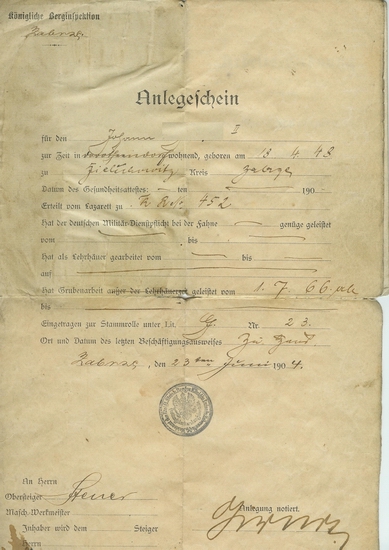 Königliche Berginspektion
Zabrze
Anlegeschein
für den Johann II
zur Zeit in wohnend, geboren am 13 4. 43
zu Kreis Zabrze
Datum des Gesundheitsattestes: ten 190
Erteilt vom Lazarett zu 452
Hat der deutschen Militär-Dienstpflicht bei der Fahne genüge geleistet
vom bis
Hat als Lehrhäuer gearbeitet vom bis
auf
Hat Grubenarbeit außer der Lehrhäuerzeit geleistet vom 1. 7. 66. ab
bis
Eingetragen zur Stammrolle unter Lit. G. Nr. 23.
Ort und Datum des letzten Beschäftigungsausweises
Zabrze, den 23ten Juni 1904.
An Herrn
Obersteiger
Masch-Werkmeister
Inhaber wird dem Steiger
Herrn
Anlegung notiert.